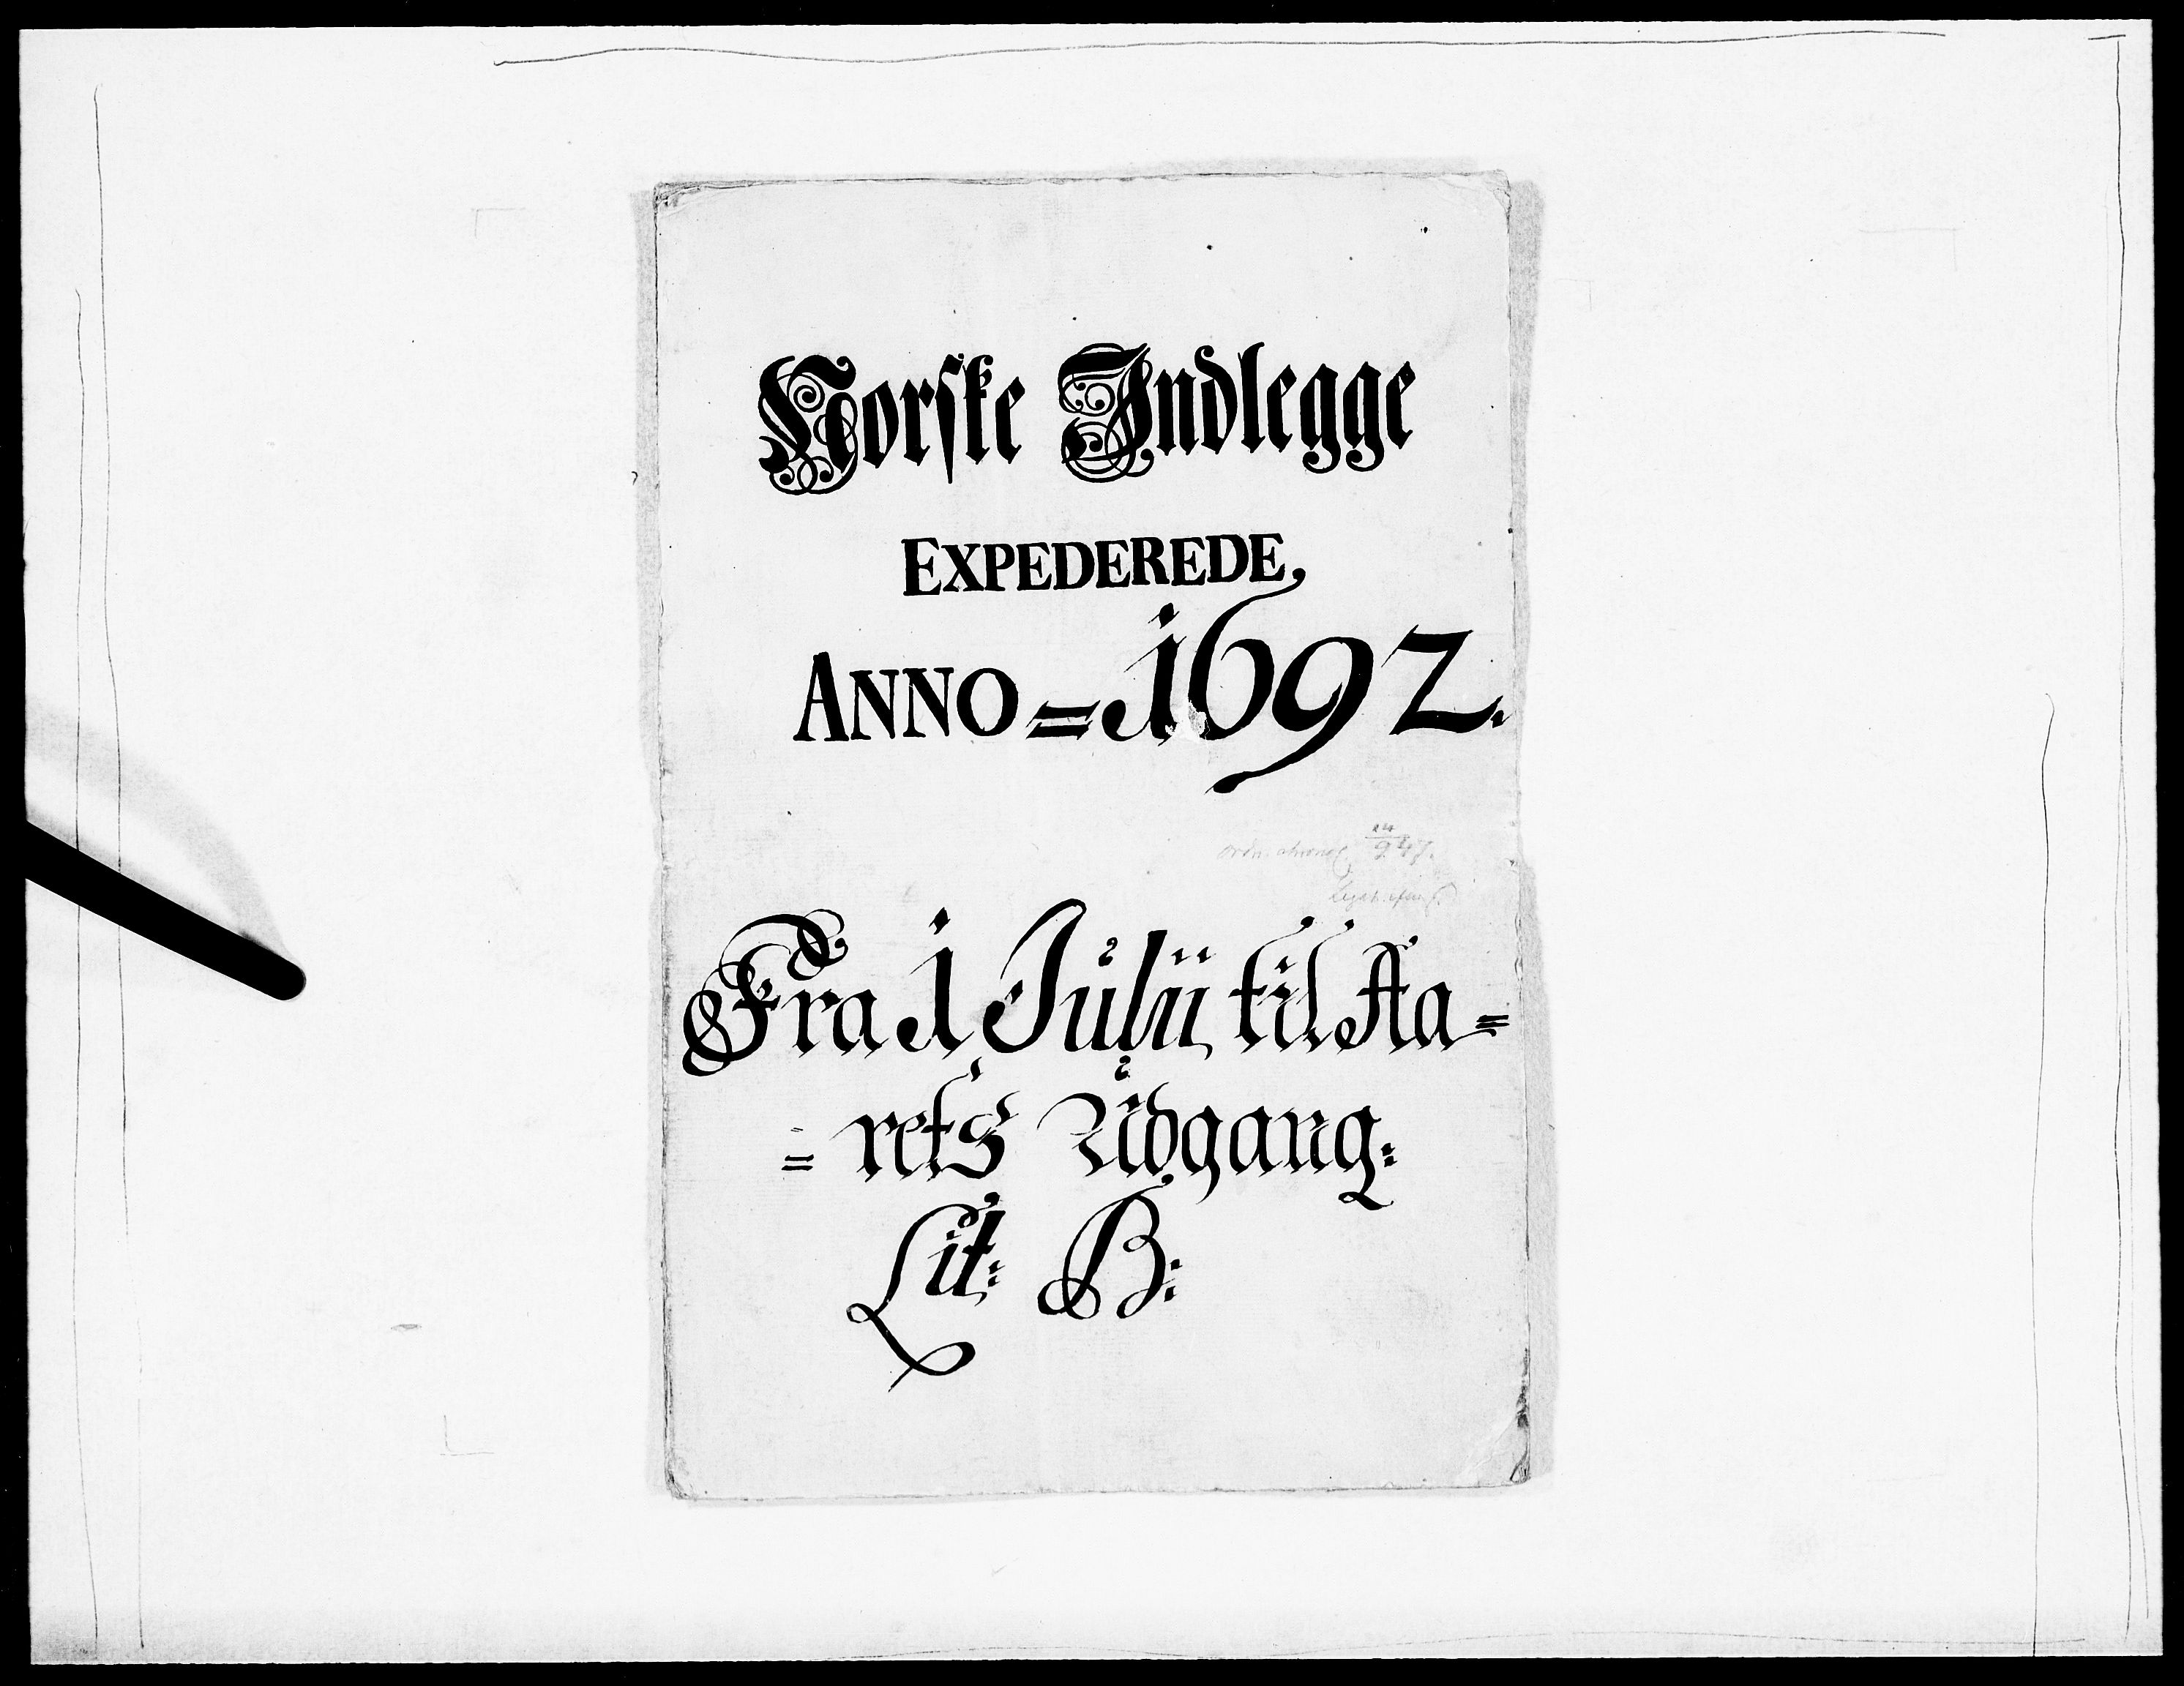 Norske Indlegge
EXPEDEREDE,
ANNO = 1692.
24/9 47.
Fra 1 Julii til Aa=
= rets Udgang:
Lit: B: